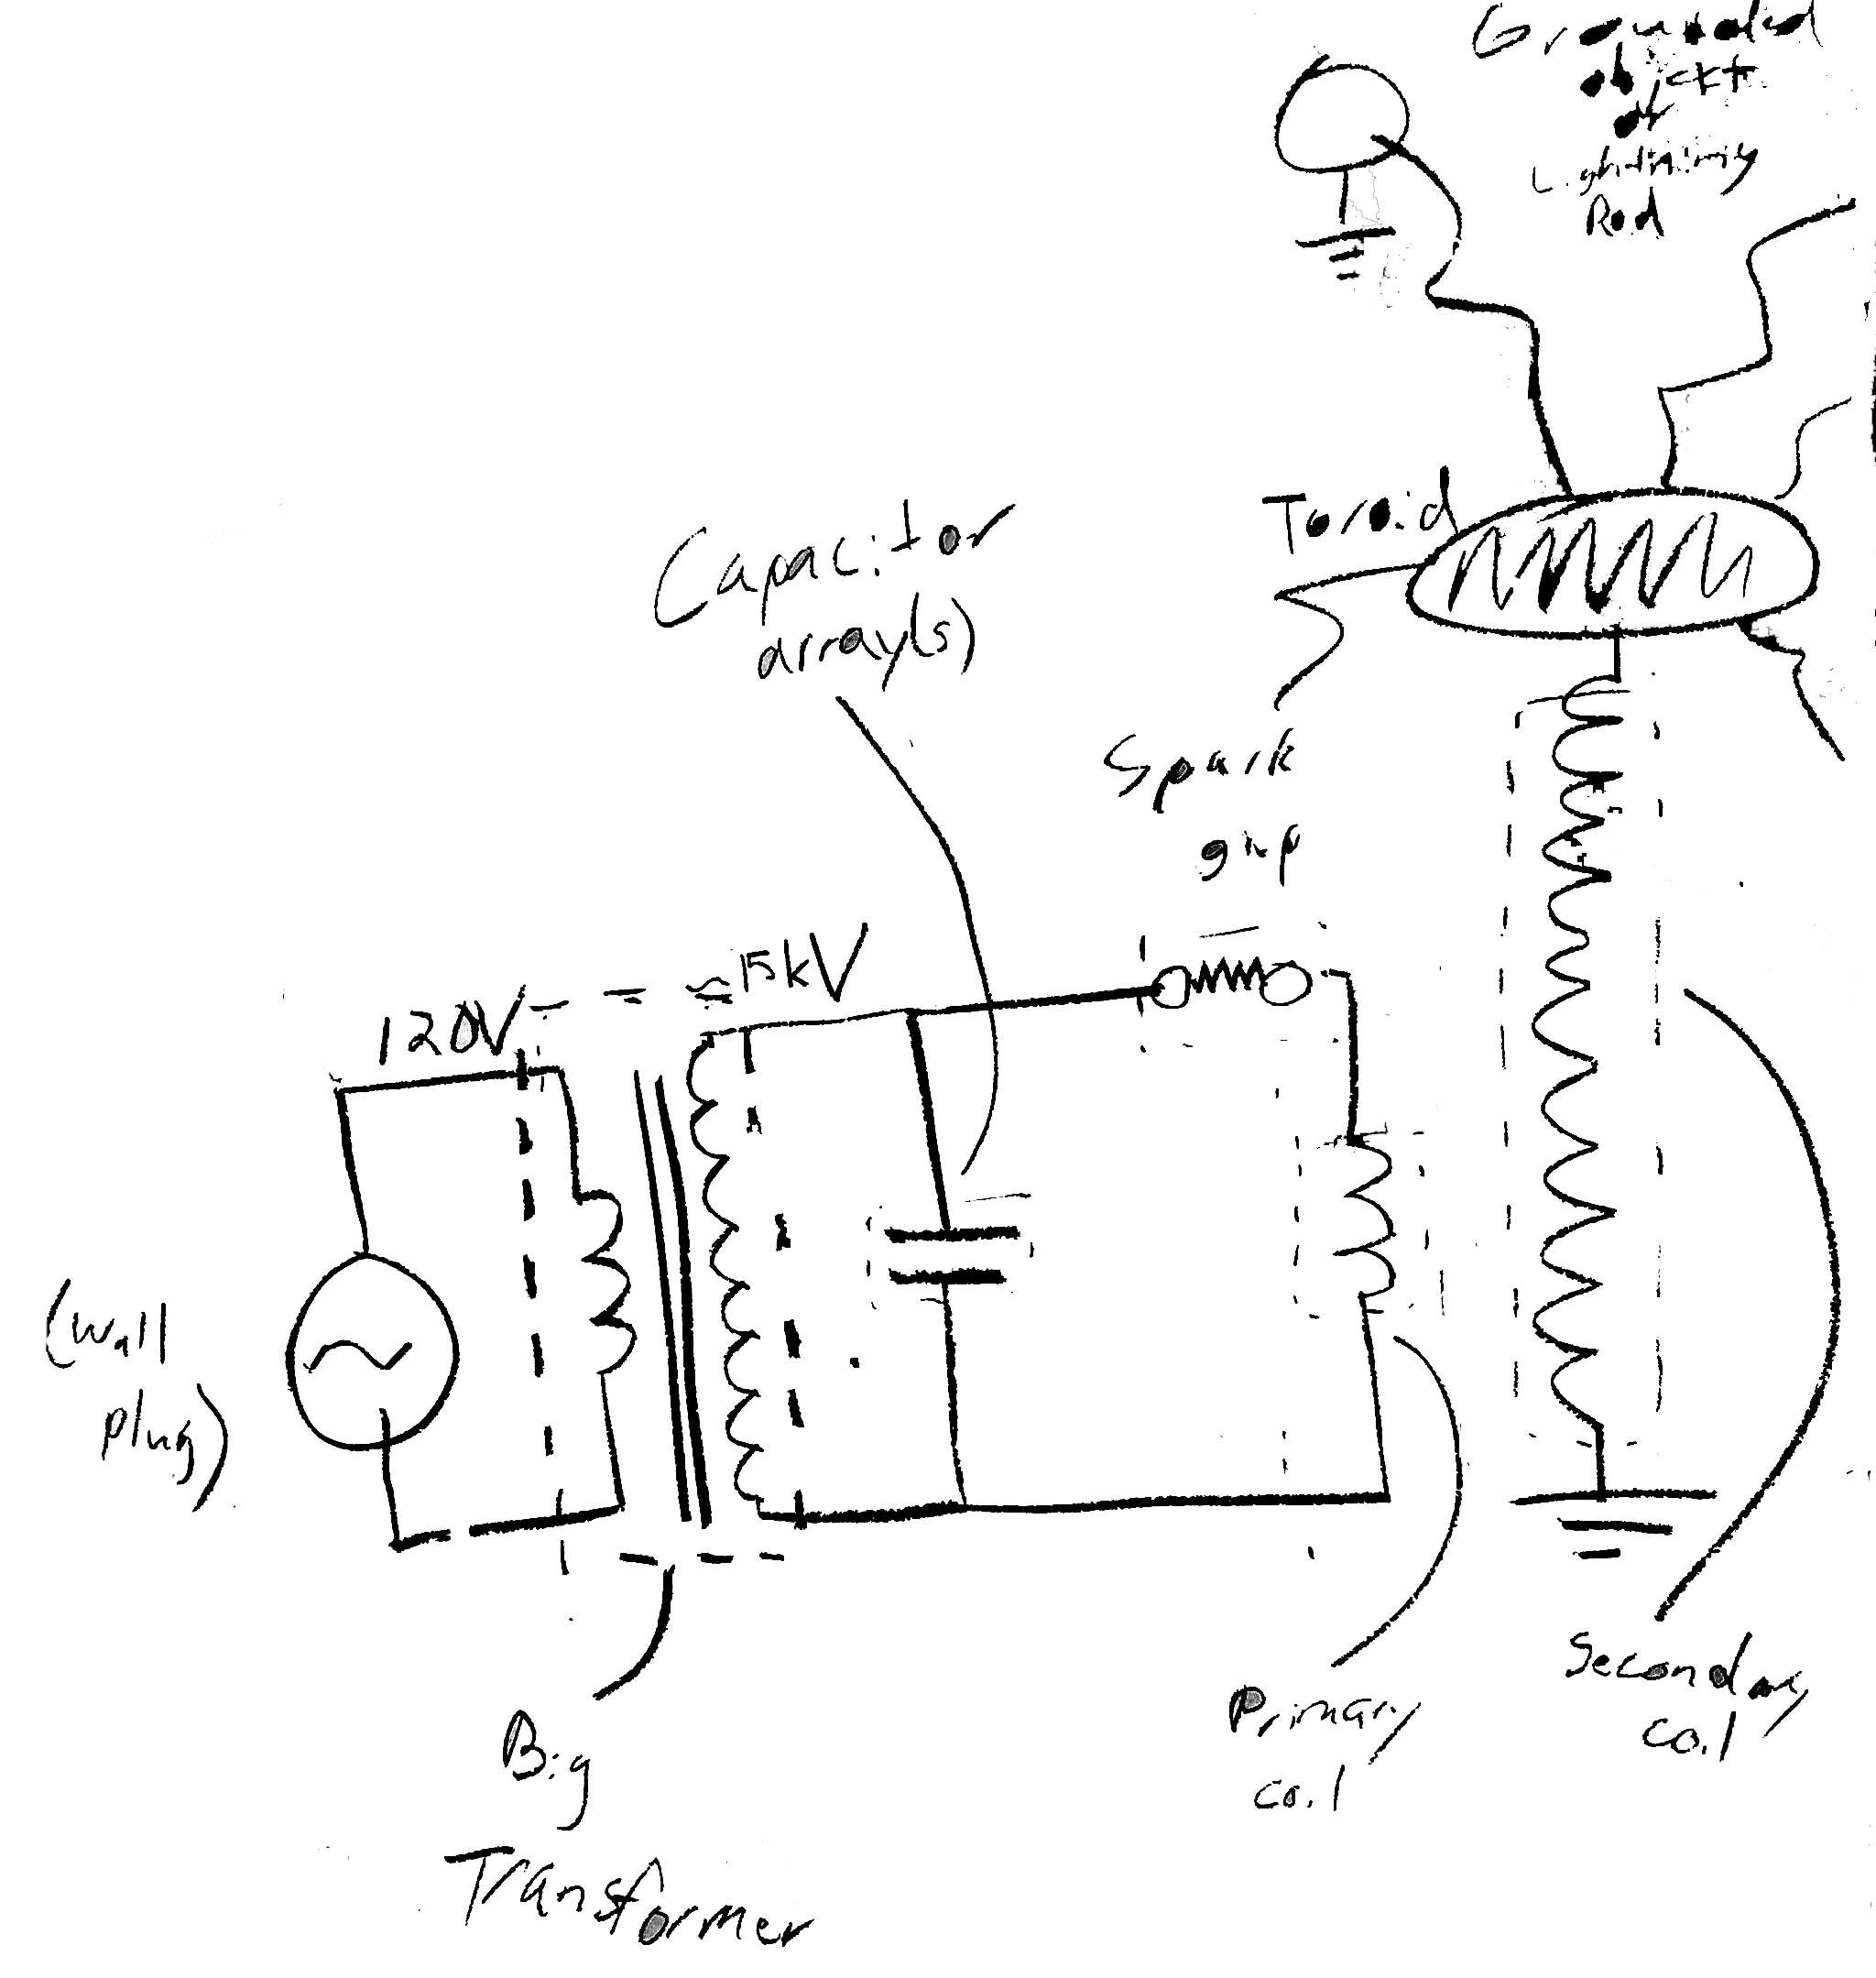 Grounded
object
or
Lightning
Rod
Toroid
Capacitor
array(s)
Spark
gap
≈15kV
120V
(Wall
plug)
Big
Transformer
Primary
coil
Secondary
coil